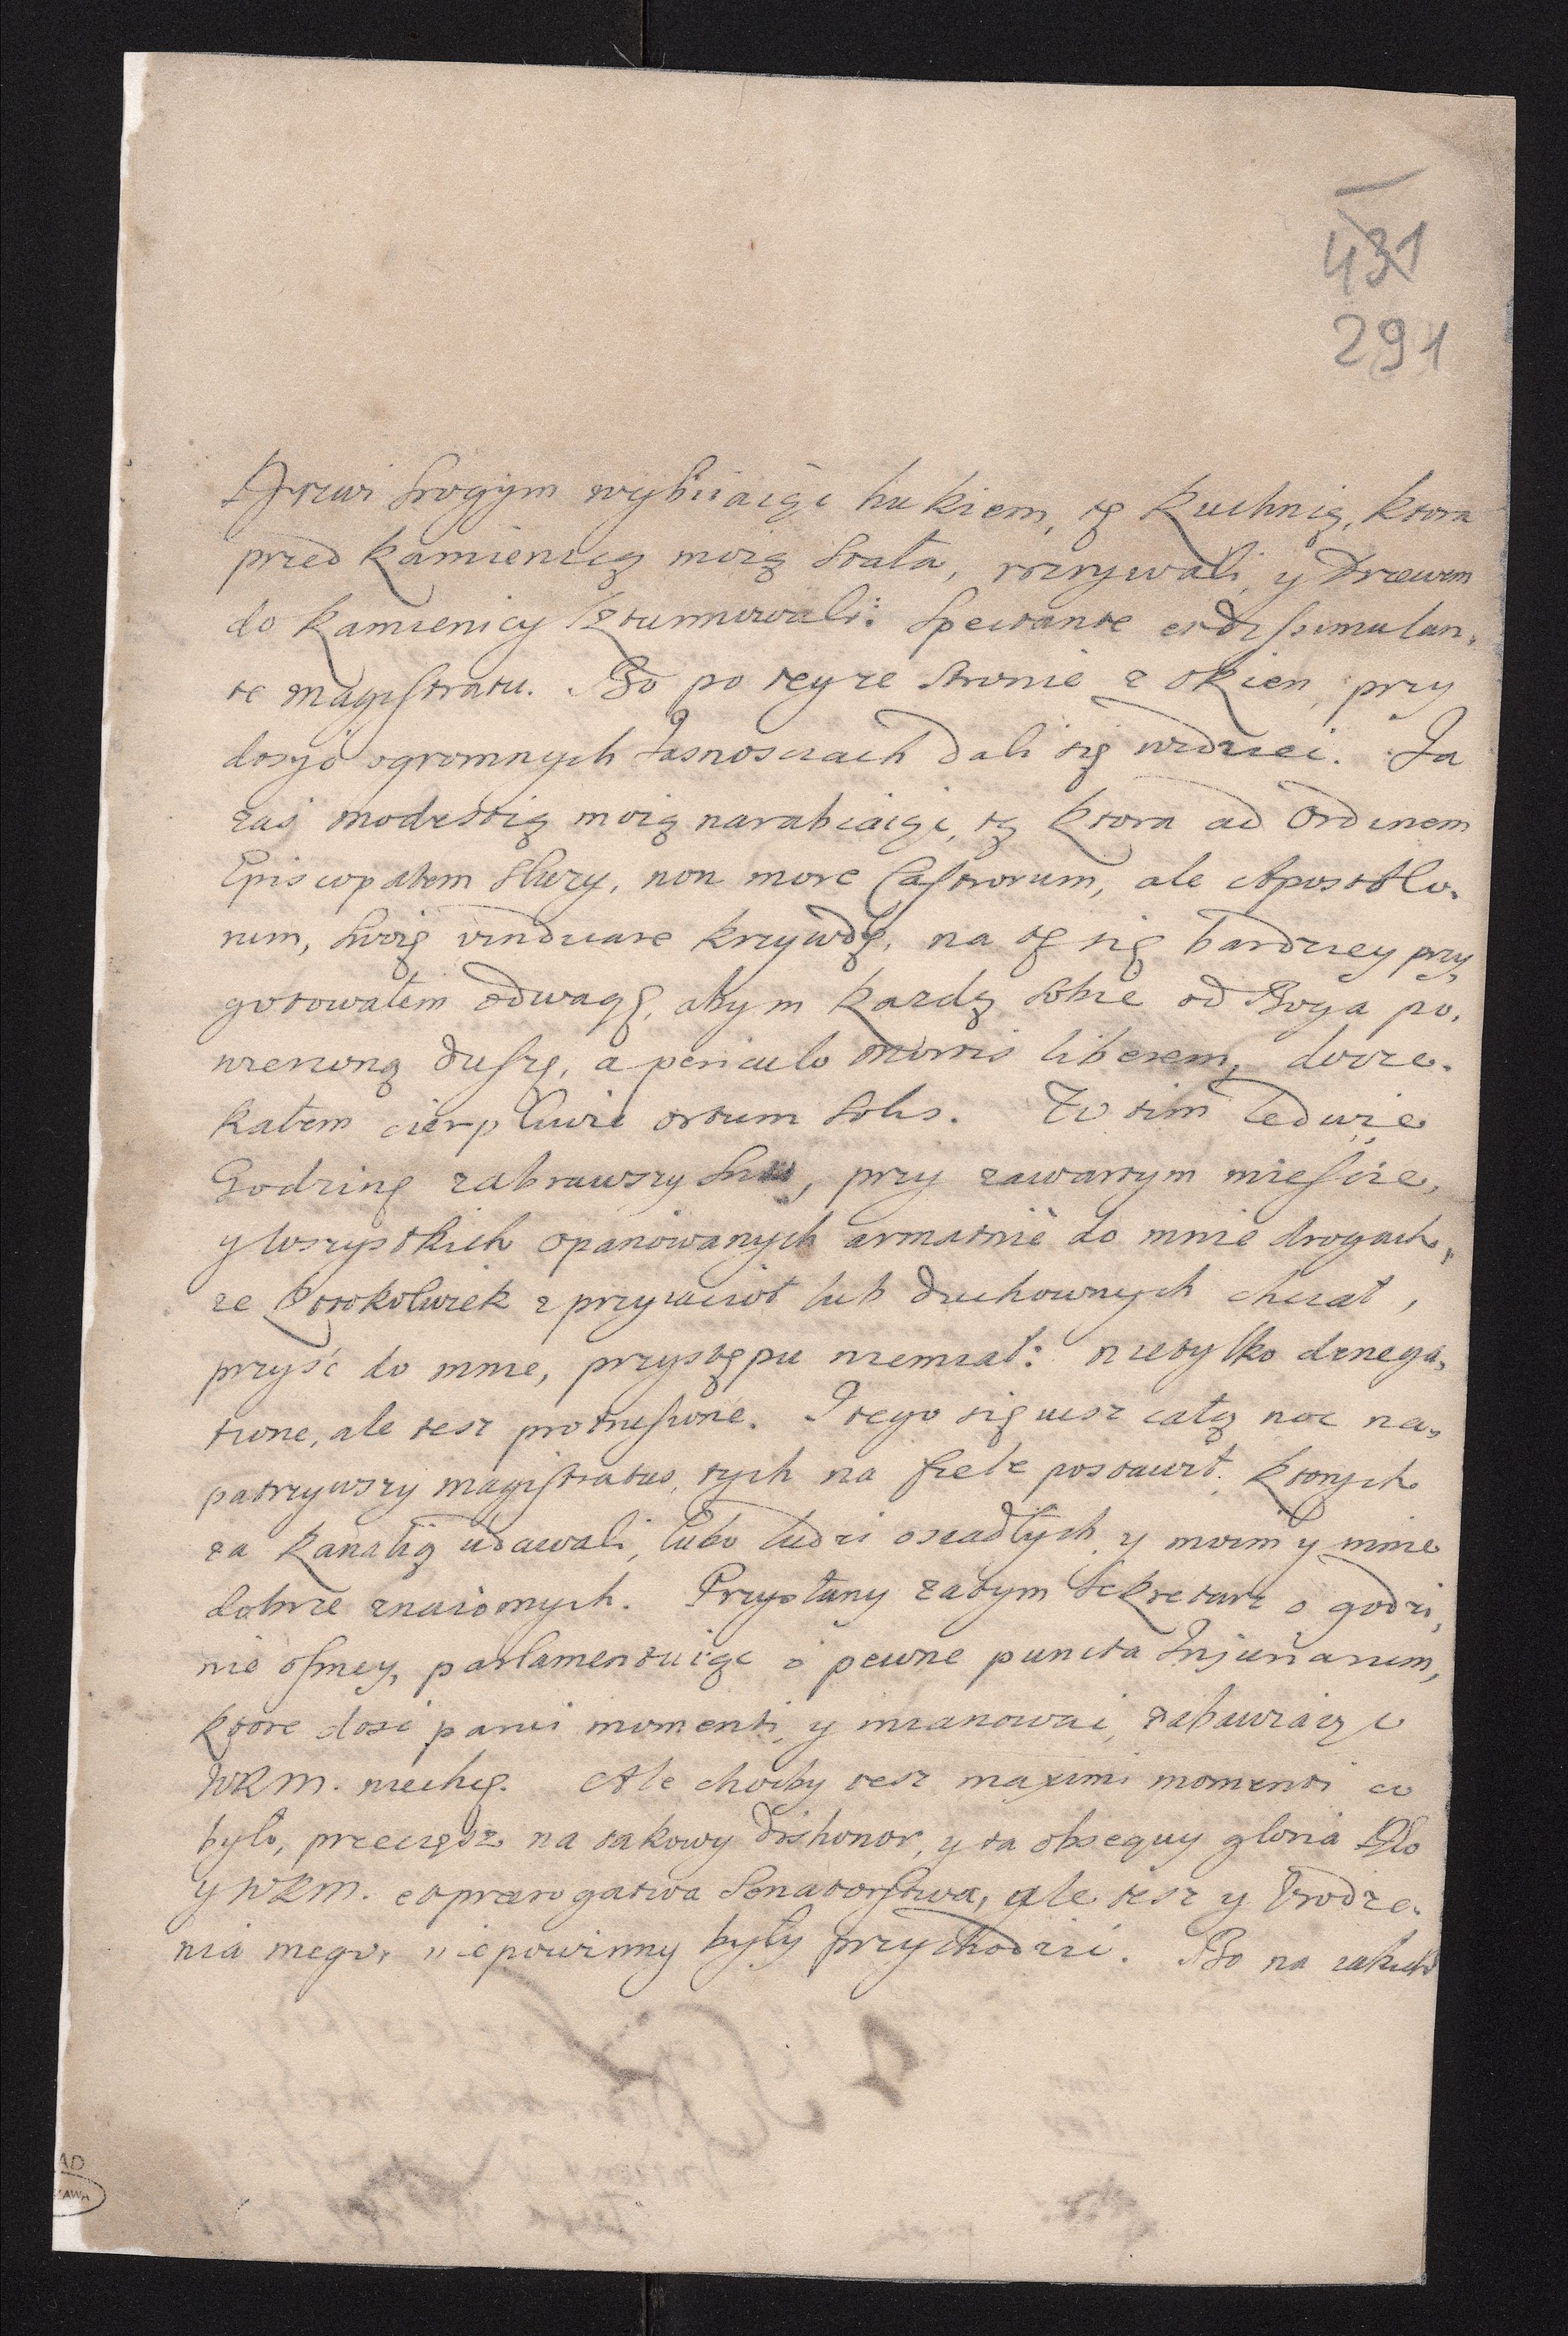 431
291
Drzwi srogym wybiiaiąc hukiem, tę Kuchnię, ktora
przed Kamienicą moią stała, rozrywali, y drzewem
do Kamienicy szturmowali: Spectante et dissimulan,
te magistratu. Bo po teyze stronie z okien, przy
dosyć ogromnych Jasnosciach dali się widziec. Ja
zaś modestią moią narabiaiąc, tą ktora ad Ordinem
Episcopalem służy, non more Castrorum, ale Apostolo,
rum, swoię vindicare krzywdę, na tę się bardziey przy,
gotowałem odwagę, abym Kazdą sobie od Boga po,
wierzoną duszę, a periculo mortis liberem, docze,
kałem cierpliwie ortum solis. W tim ledwie
Godzinę zabrawszy snu, przy zawartym miescie,
y wszystkich opanowanych armatnie do mnie drogach,
ze ktokolwiek z przyiacioł lub duchownych chciał,
przyść do mnie, przystępu niemiał: nietylko denega,
tione, ale tesz protrusione. I tego się iusz całą noc na,
patrzywszy magistratus, tych na siele postawił, Ktorych
za Kanalią udawali, lubo ludzi osiadłych y moim y mnie
dobrze znaiomych. Przysłany zatym Sekretarz o godzi,
nie osmey, parlamentuiąc o pewne puncta Injuriarum,
ktore dosc parvi momenti, y mianowac, zabawiaiąc
WKM. niechcę. Ale choćby tesz maximi momenti co
było, przeciesz na takowy dishonor, y ta obsequy gloria Dło
y WKM. et praerogatiwa Senatorstwa, ale tesz y Vrodze,
nia mego, niepowinny były przychodzić. Bo na takich